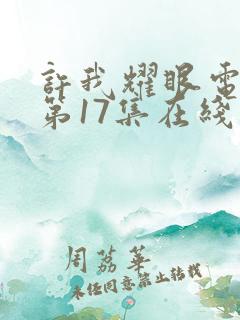 許我耀眼電
第17集在綫
周荔華
未经同意禁止转载